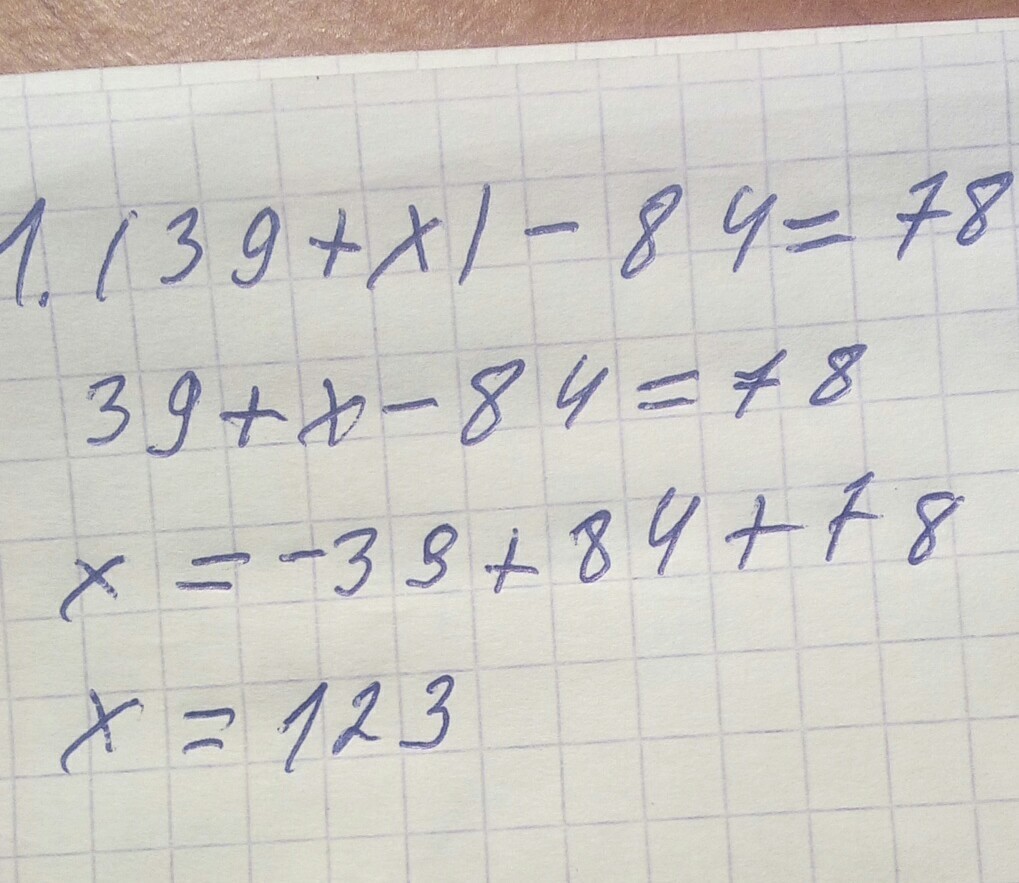 1. (39+x)-84=78
39+x-84=78
x=-39+84+78
x=123